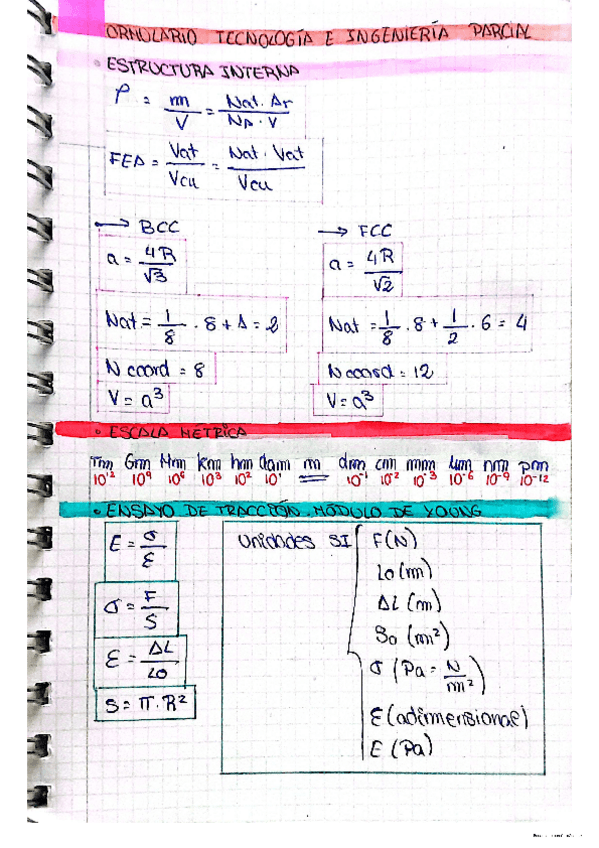 ORMULARIO TECNOLOGÍA E INGENIERÍA PARCIAL
• ESTRUCTURA INTERNA
ρ = m/V = Nat · Ar / NA · V
FEA = Vat/Vcu = Nat · Vat / Vcu
→ BCC
a = 4R/√3
Nat = 1/8 · 8 + 1 = 2
N coord = 8
V = a³
→ FCC
a = 4R/√2
Nat = 1/8 · 8 + 1/2 · 6 = 4
N coord = 12
V = a³
• ESCALA METRICA
Tm Gm Mm km hm dam m dm cm mm μm nm pm
10¹² 10⁹ 10⁶ 10³ 10² 10¹ 10⁻¹ 10⁻² 10⁻³ 10⁻⁶ 10⁻⁹ 10⁻¹²
• ENSAYO DE TRACCIÓN. MÓDULO DE YOUNG
E = σ/ε
σ = F/S
ε = ΔL/L0
S = π · R²
Unidades SI
F (N)
L0 (m)
ΔL (m)
S0 (m²)
σ (Pa = N/m²)
ε (adimensional)
E (Pa)